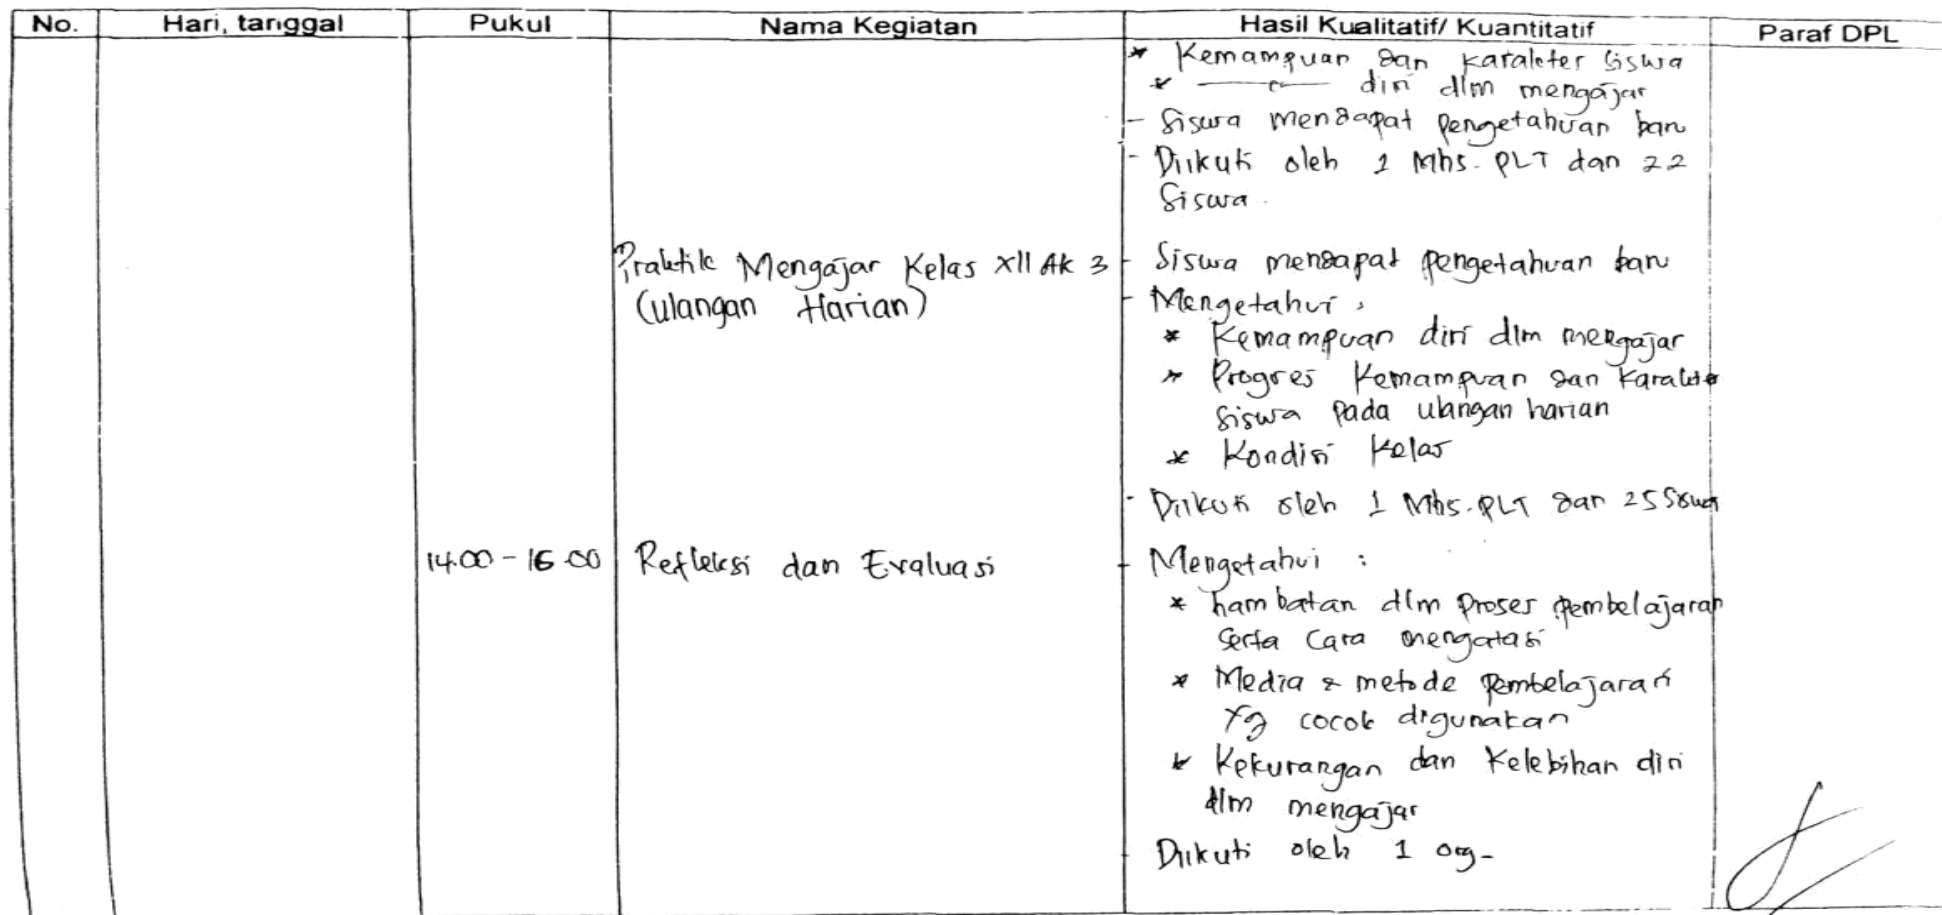 No. Hari, tanggal Pukul Nama Kegiatan Hasil Kualitatif/ Kuantitatif Paraf DPL
* Kemampuan dan karakter siswa
* —〃— diri dlm mengajar
- Siswa mendapat pengetahuan baru
- Diikuti oleh 1 Mhs. PLT dan 22
Siswa.
Praktik Mengajar Kelas XII Ak 3
(Ulangan Harian)
- Siswa mendapat pengetahuan baru
- Mengetahui :
* Kemampuan diri dlm mengajar
* Progres Kemampuan dan Karakter
siswa pada ulangan harian
* Kondisi Kelas
- Diikuti oleh 1 Mhs. PLT dan 25 Siswa
14.00 - 16.00 Refleksi dan Evaluasi
- Mengetahui :
* hambatan dlm proses pembelajaran
serta cara mengatasi
* Media & metode pembelajaran
yg cocok digunakan
* Kekurangan dan Kelebihan diri
dlm mengajar
- Diikuti oleh 1 org-